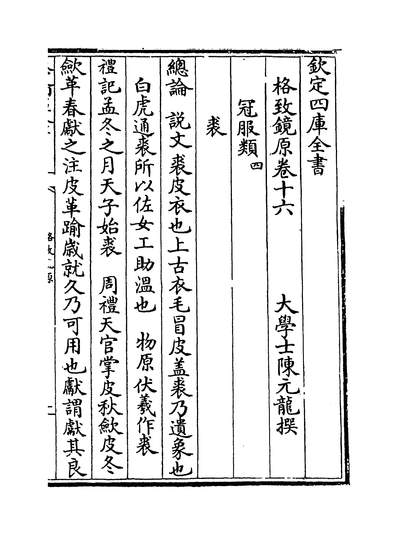 欽定四庫全書
格致鏡原卷十六
大學士陳元龍撰
冠服類四
裘
總論 說文裘皮衣也上古衣毛冒皮盖裘乃遺象也
白虎通裘所以佐女工助溫也 物原伏羲作裘
禮記孟冬之月天子始裘 周禮天官掌皮秋歛皮冬
歛革春獻之注皮革踰歲就久乃可用也獻謂獻其良